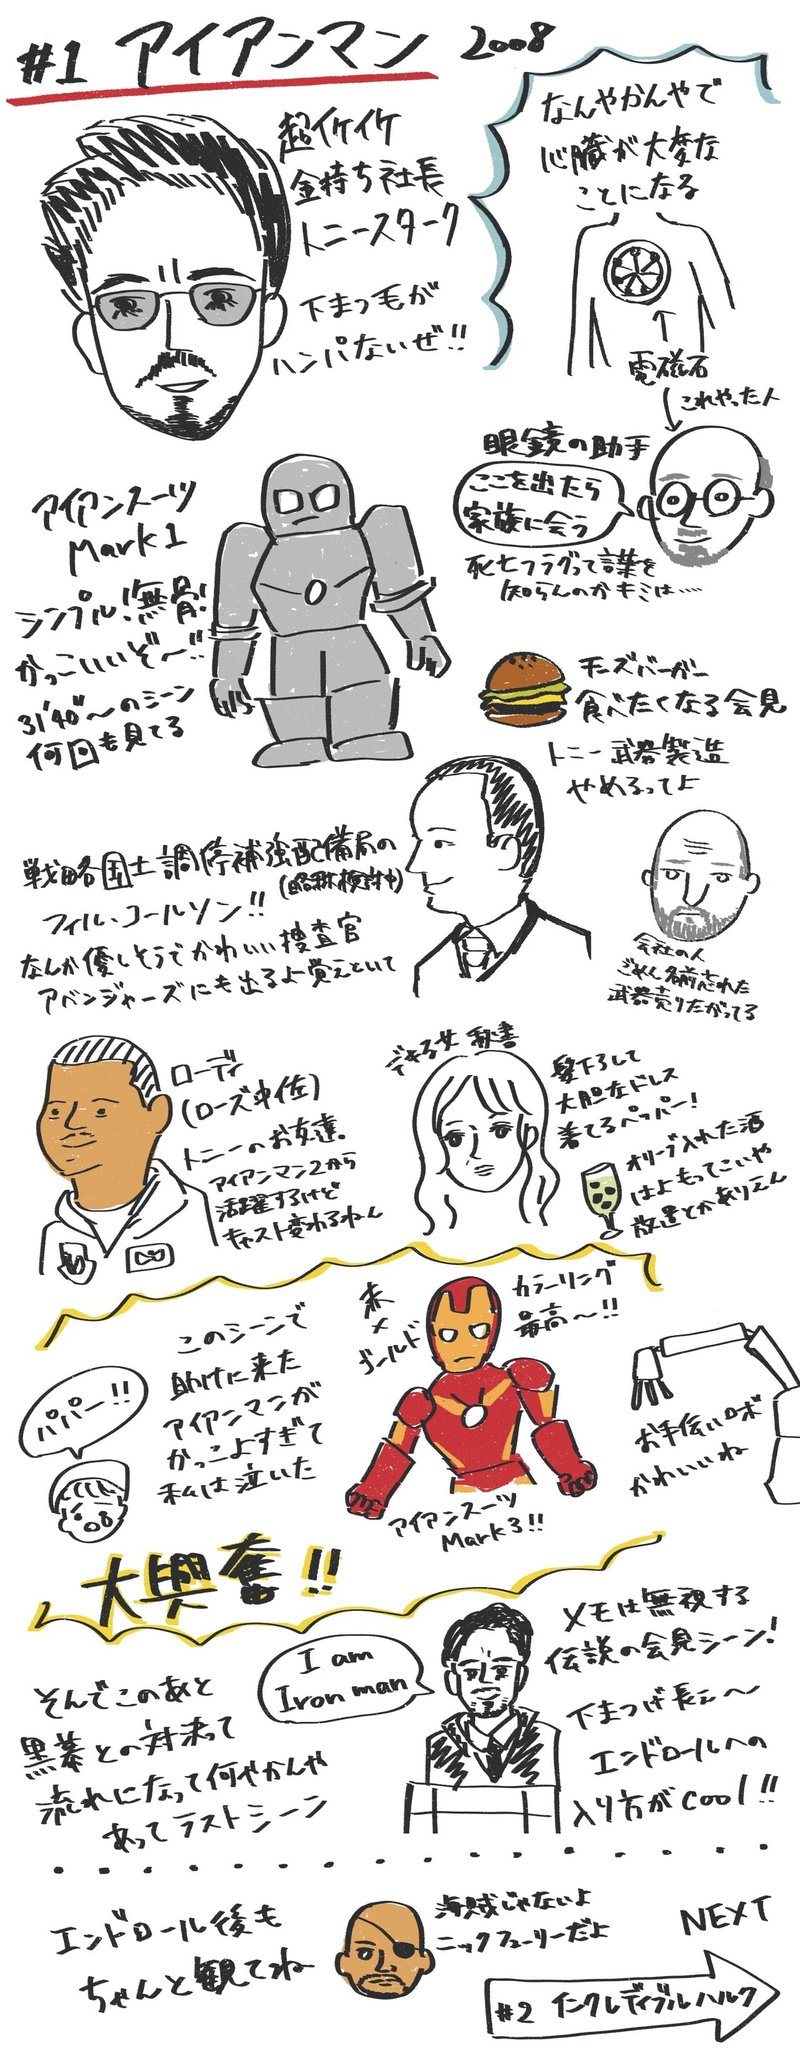 #1 アイアンマン 2008
超イケイケ
金持ち社長
トニースターク
下まつ毛が
ハンパないぜ!!
なんやかんやで
心臓が大変な
ことになる
電磁石
これやった人
眼鏡の助手
ここを出たら
家族に会う
死亡フラグって言葉を
知らんのかキミは……
アイアンスーツ
Mark1
シンプル!無骨!
かっこいいぞ〜!!
31'40"〜のシーン
何回も見てる
チーズバーガー
食べたくなる会見
トニー武器製造
やめるってよ
戦略国土調停補強配備局の
(略称検討中)
フィル・コールソン!!
なんか優しそうでかわいい捜査官
アベンジャーズにも出るよ覚えといて
会社の人
ごめん名前忘れた
武器売りたがってる
ローディ
(ローズ中佐)
トニーのお友達。
アイアンマン2から
活躍するけど
キャスト変わるねん
デキる女 秘書
髪下ろして
大胆なドレス
着てるペッパー!
オリーブ入れた酒
はよもってこいや
放置とかありえん
このシーンで
助けに来た
アイアンマンが
かっこよすぎて
私は泣いた
パパー!!
赤
×
ゴールド
カラーリング
最高〜!!
アイアンスーツ
Mark3!!
お手伝いロボ
かわいいね
大興奮!!
そんでこのあと
黒幕との対決って
流れになって何やかんや
あってラストシーン
I am
Iron man
メモは無視する
伝説の会見シーン!
下まつげ長ぇ〜
エンドロールへの
入り方がcool!!
エンドロール後も
ちゃんと観てね
海賊じゃないよ
ニックフューリーだよ
NEXT
#2 インクレディブルハルク